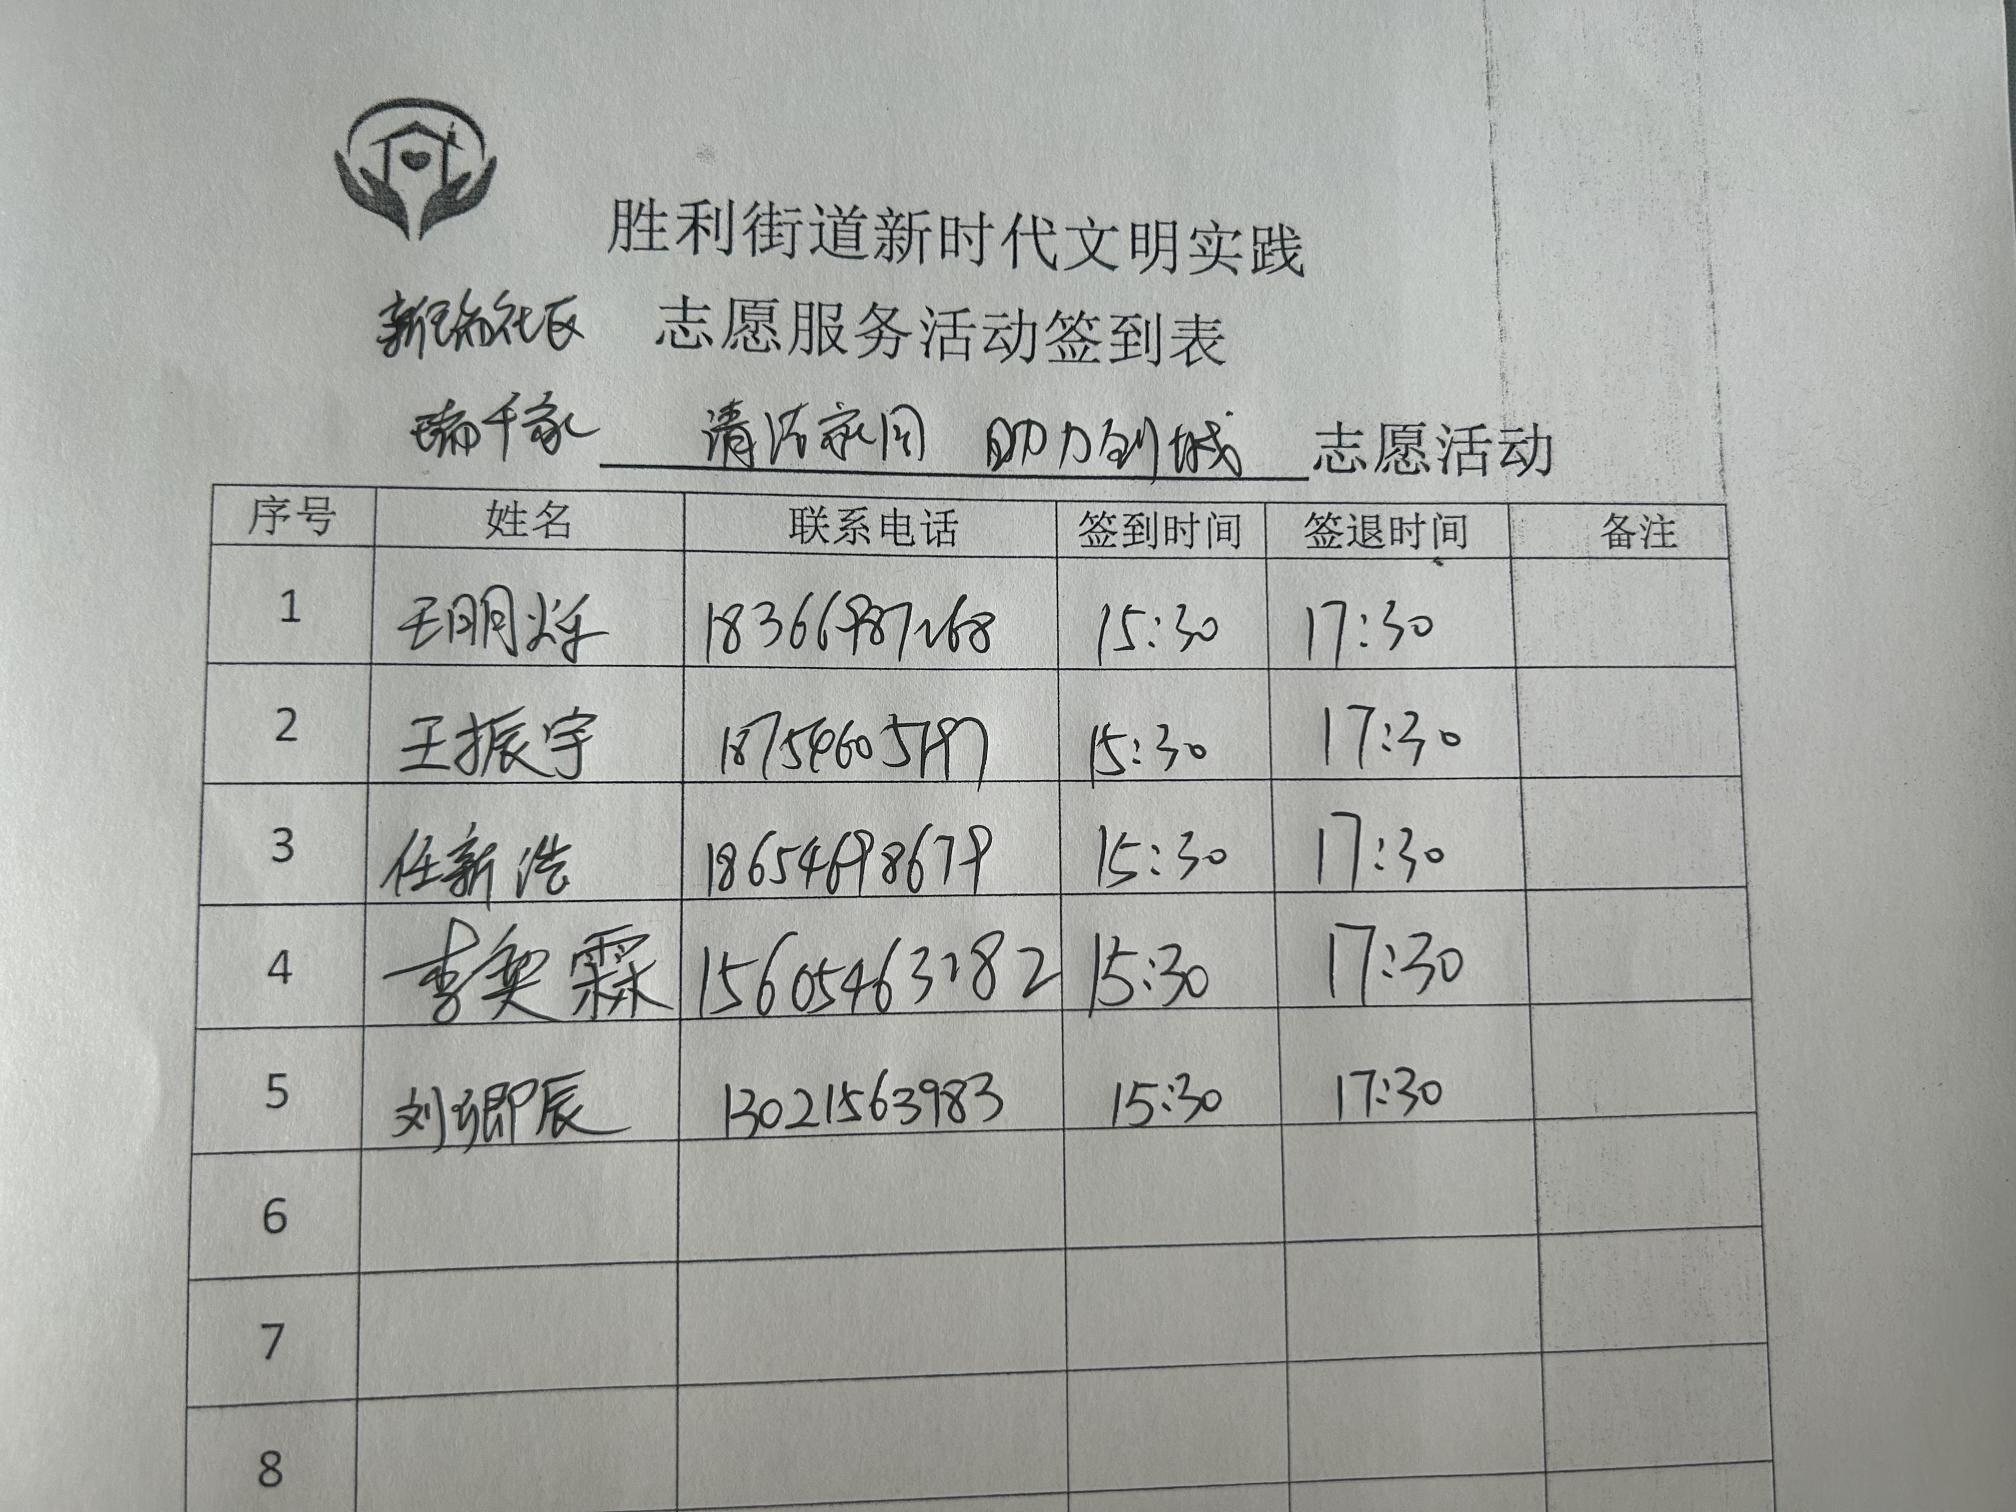 胜利街道新时代文明实践
新瑞社区 志愿服务活动签到表
瑞千家 清洁家园 助力创城 志愿活动
序号 姓名 联系电话 签到时间 签退时间 备注
1 王明烁 15:30 17:30
2 王振宇 18754605797 15:30 17:30
3 任新浩 18654698679 15:30 17:30
4 李奕霖 15605463282 15:30 17:30
5 刘卿辰 13021563983 15:30 17:30
6
7
8